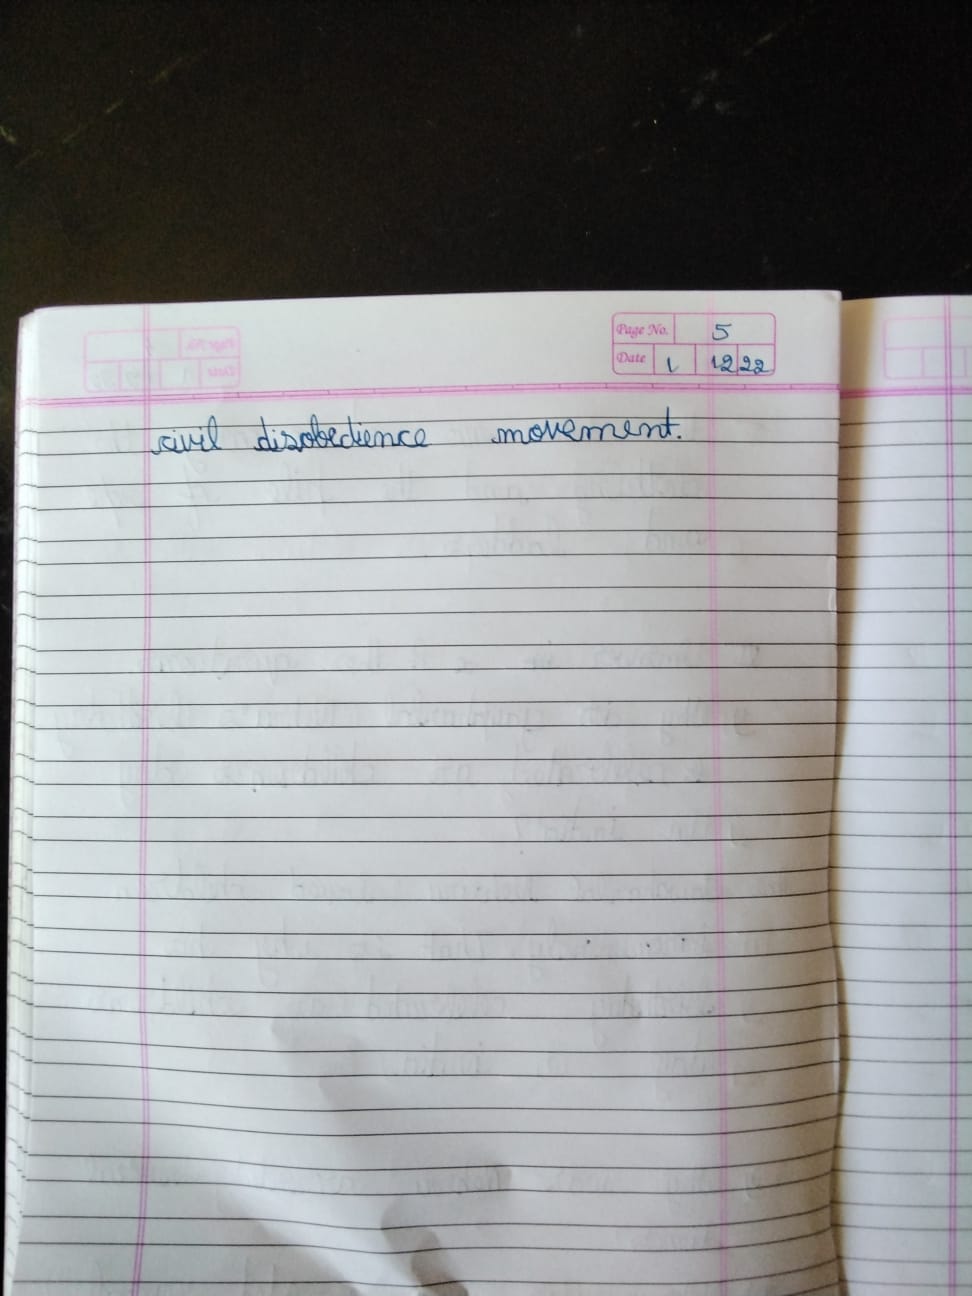 Page No. 5
Date 1 12 22
civil disobedience movement.